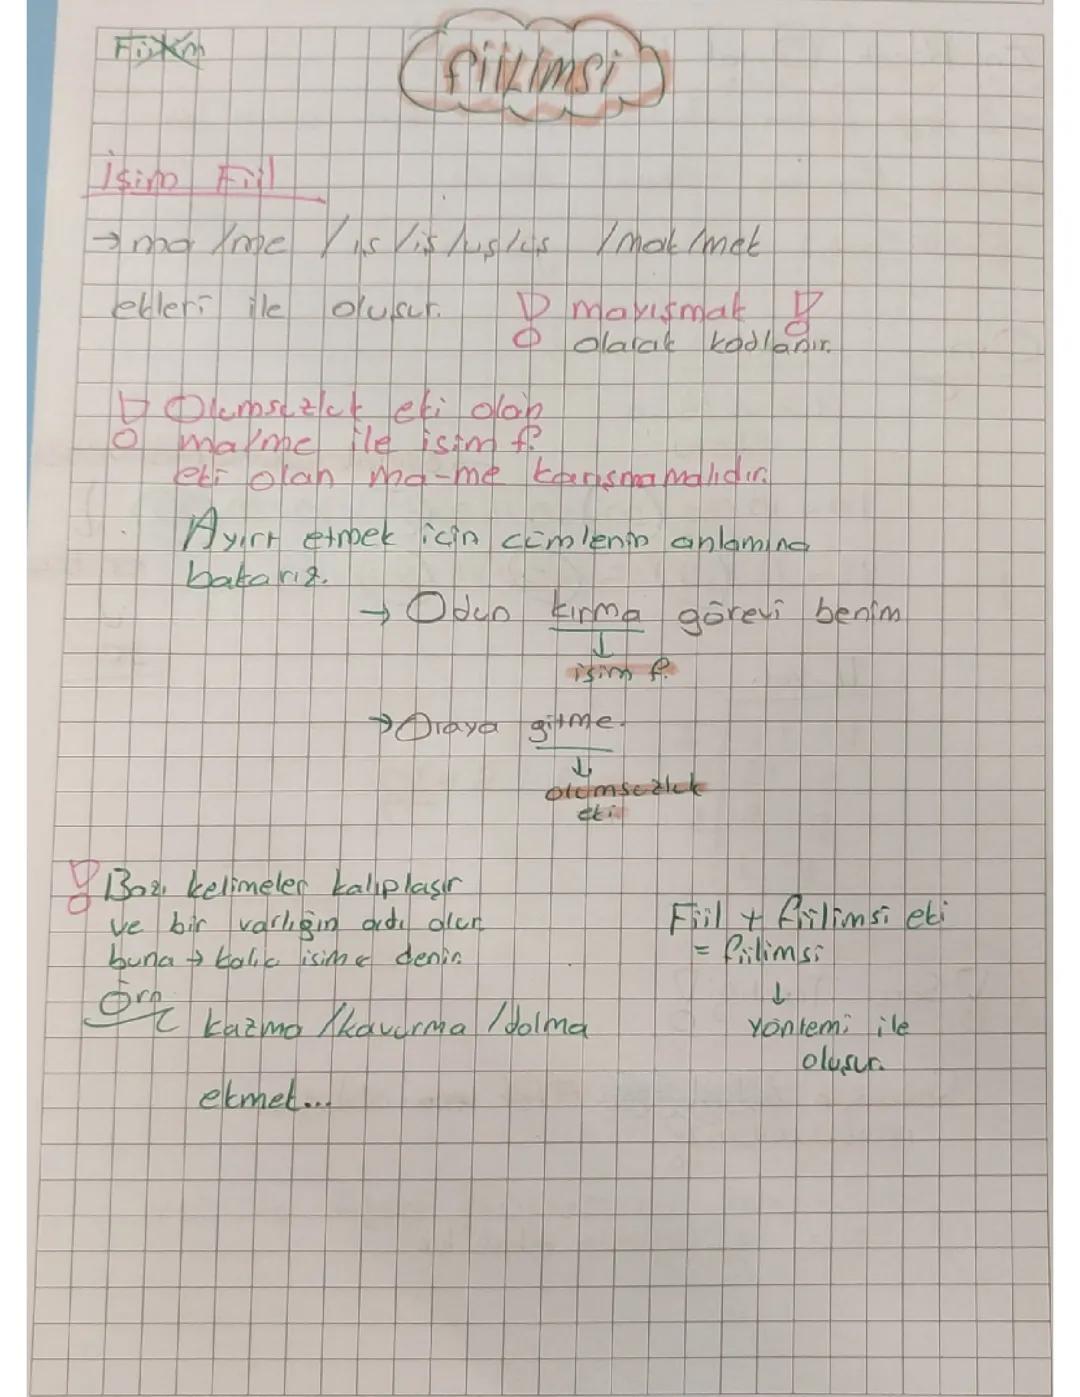 Fiilm
fiilimsi
İsim Fiil
→ ma /me / ış /iş /uş /üş /mak /mek
ekleri ile oluşur. ! mayışmak !
olarak kodlanır.
! Olumsuzluk eki olan
ma/me ile isim f.
eki olan ma-me karışmamalıdır.
Ayırt etmek için cümlenin anlamına
bakarız.
→ Odun kırma görevi benim
↓
isim f.
→ Oraya gitme.
↓
olumsuzluk
eki
! Bazı kelimeler kalıplaşır
ve bir varlığın adı olur
buna → kalıc isime denir.
Örn
kazma /kavurma /dolma
ekmek...
Fiil + fiilimsi eki
= fiilimsi
↓
yöntemi ile
oluşur.